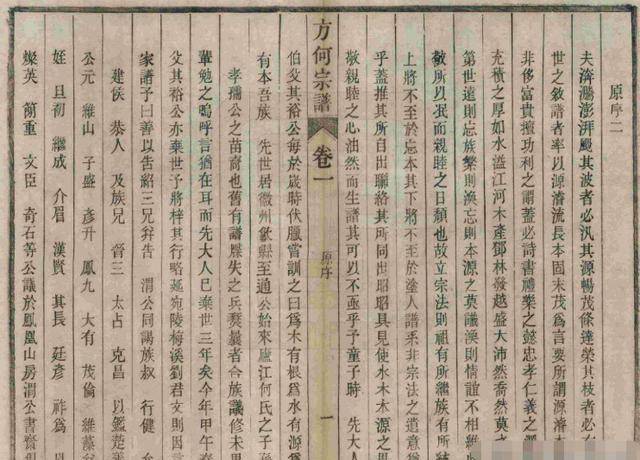 原序二
夫渀瀁澎湃颺其波者必汎其源暢茂條達榮其枝者必
世之敘譜者率以源濬流長本固末茂爲言要所謂源濬本
非侈富貴擅功利之謂蓋必詩書禮樂之懿忠孝仁義之
充積之厚如水溢江河木產鄧林發越盛大沛然喬然莫之
第世遠則忘族繁則渙忘則本源之莫議渙則情誼不相維
敬所以泯而親睦之日頽也故立宗法則祖有所繼族有所
上將不至於忘本其下將不至於塗人譜系非宗法之遺意
乎蓋推其所自出聯絡其所同出昭昭具見使水木本源之
敬親睦之心油然而生譜其可以不亟乎予童子時 先大人
方何宗譜 卷一 原序 一
伯父其裕公每於歲時伏臘嘗訓之曰爲木有根爲水有源
有本吾族 先世居徽州歙縣至通公始來廬江何氏之子孫
孝瑀公之苗裔也舊有譜牒失之兵燹曩者合族議修未果
輩勉之嗚呼言猶在耳而先大人已棄世三年矣今年甲午春
父其裕公亦棄世予將梓其行略延宛陵梅溪劉君文則因言
家譜予曰善以告紹三兄弁告 渭公同謁族叔 行健
建侯 恭人 及族兄 晉三 太占 克昌 以
公元 維山 子盛 彥升 鳳九 大有 茂倫 維蓁
姪 且初 繼成 介眉 漢賢 其長 廷彥 祚爲
燦英 簡重 文臣 奇石等公議於鳳凰山房渭公書齋